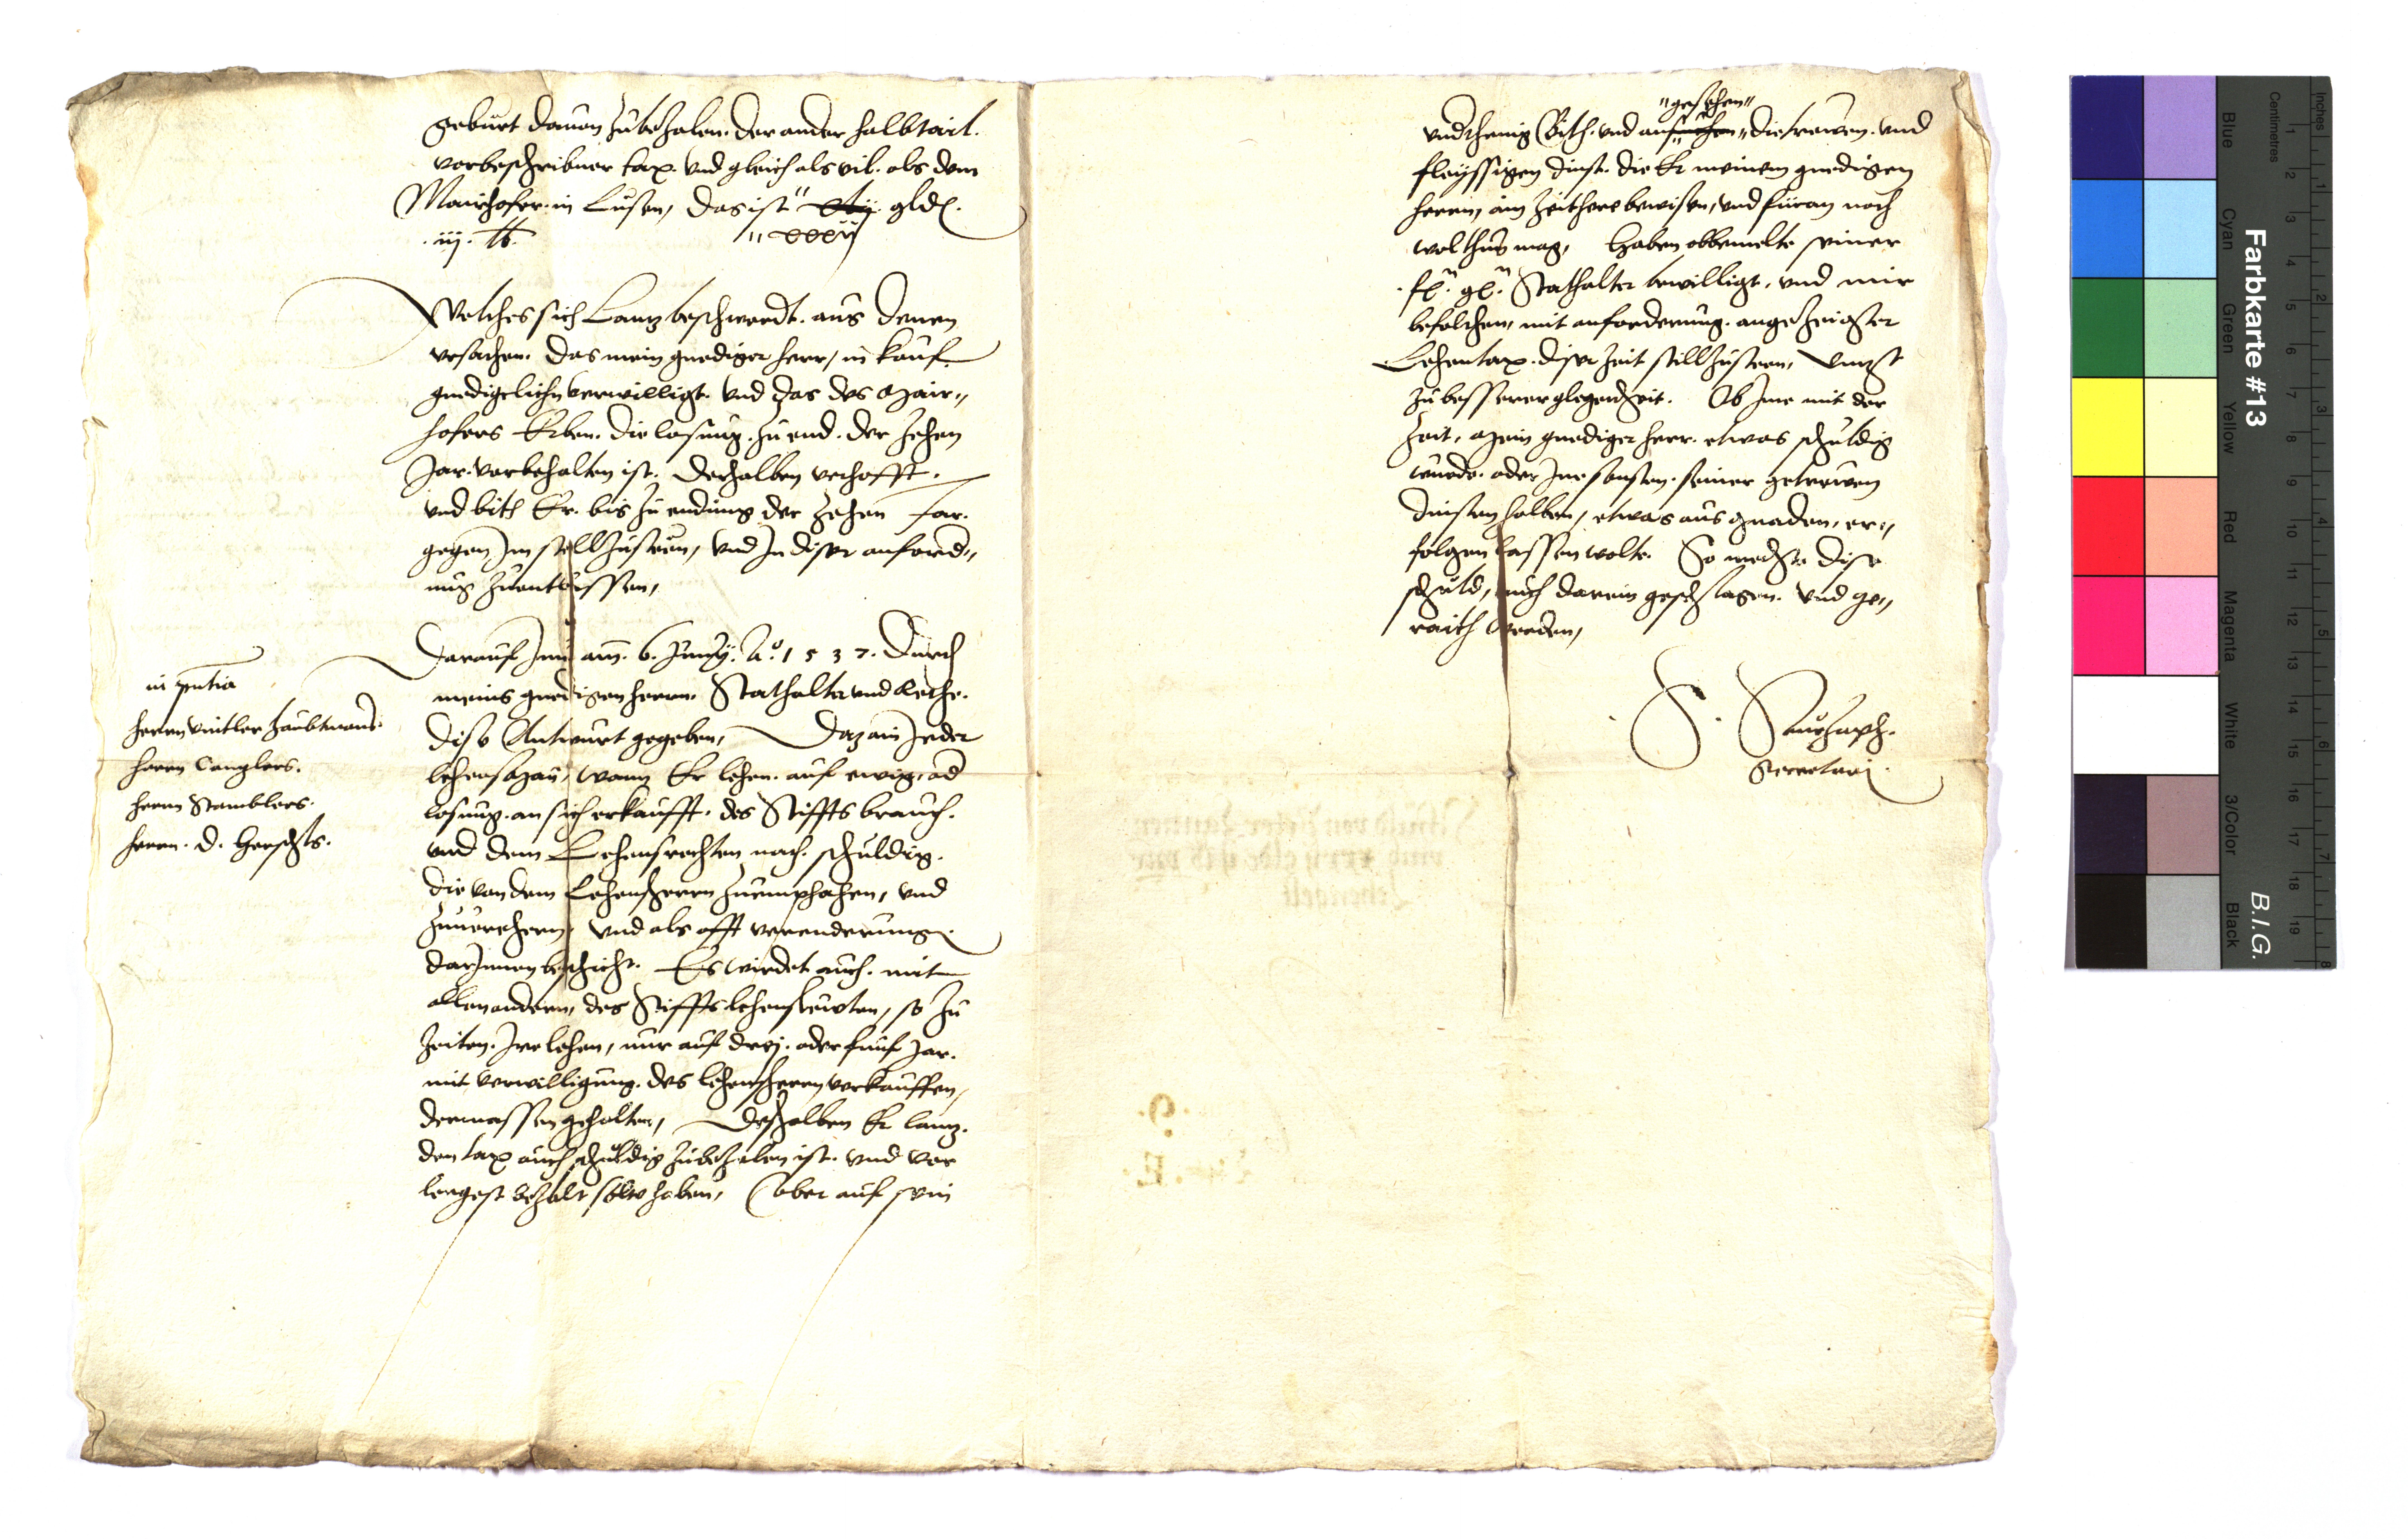 geburt dauon zubezalen. der ander halbtail.
vorbeschribner tax. vnd gleich als vil. als dem
Mairhofer in Lusen, das ist " gld.
.iij. lb. " xxxvij
Welches sich Lanz beschwerdt. aus denen
vrsachen. Das mein genediger herr, in kauf
genedigclichen verwilligt. vnd das des Mair„
hofers Erben. die losung. zu end. der zehen
Jar. vorbehalten ist. Derhalben verhofft.
vnd bith Er. bis zu endung der zehen Jar.
gegen Jm stillzusteen, vnd In diser anford„
nug zuentlassen,
Darauf Jme am. 6. Junij. Ao. 1537. Durch
meins genedigen herrn. Stathalter vnd Rethe.
dise Antwurt gegeben, Daz ain Jeder
lehensman, wann Er lehen. auf ewig. od
losung. an sich erkaufft. des Stiffts brauch.
vnd dem Lehensrechten nach. schuldig.
die von dem Lehensherrn zuemphahen, vnd
zuuerehern, vnd als offt verenderung
darJnnen beschicht. Es wirdet auch. mit
allen andern, des Stiffts lehensleuten, so zu
Zeiten. Jre lehen, nur auf drej. oder funf Jar.
mit verwilligung. des lehensherrn verkauffen,
dermassen gehalten, Deshalben Er lanz.
den tax auch schuldig zubezalen ist. vnd vor
lengest bezalt solte haben, Aber auf sein
in presentia
herrn Vintler haubtmans.
herrn Canzlers.
herrn Stamblers.
herrn. D.
"gesehen"
vndthenig Bith. vnd ansuchen„ die trewen. vnd
fleyssigen dinst. die Er meinem genedigen
herrn, ain Zeithere bewisen, vnd füran noch
wol thun mag, Haben obbemelte seiner
.f. g. Stathalter bewilligt, vnd mir
befolchen, mit anforderung. angezeigter
Lehentax. diser Zeit stillzusteen, Vnzt
zu besserer glegenhait. Ob Jme mit der
Zeit, Mein genediger herr. etwas schuldig
wurde. oder Jme sonsten. seiner getrewen
dinsten halben, etwas aus gnaden, er„
folgen lassen wolte. So mecht dise
schuld, auch darein geschlagen. vnd ge„
raith werden,
Secretarj.